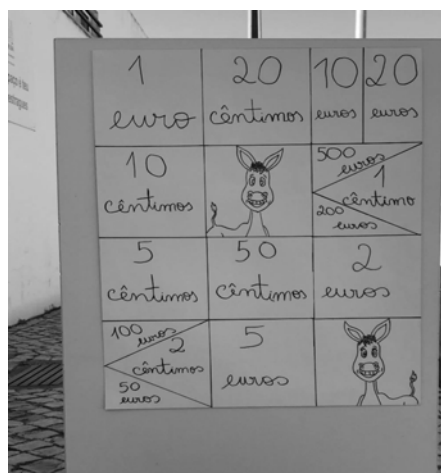 1 euro
20 cêntimos
10 euros
20 euros
10 cêntimos
500 euros
1 cêntimo
200 euros
5 cêntimos
50 cêntimos
2 euros
100 euros
2 cêntimos
50 euros
5 euros